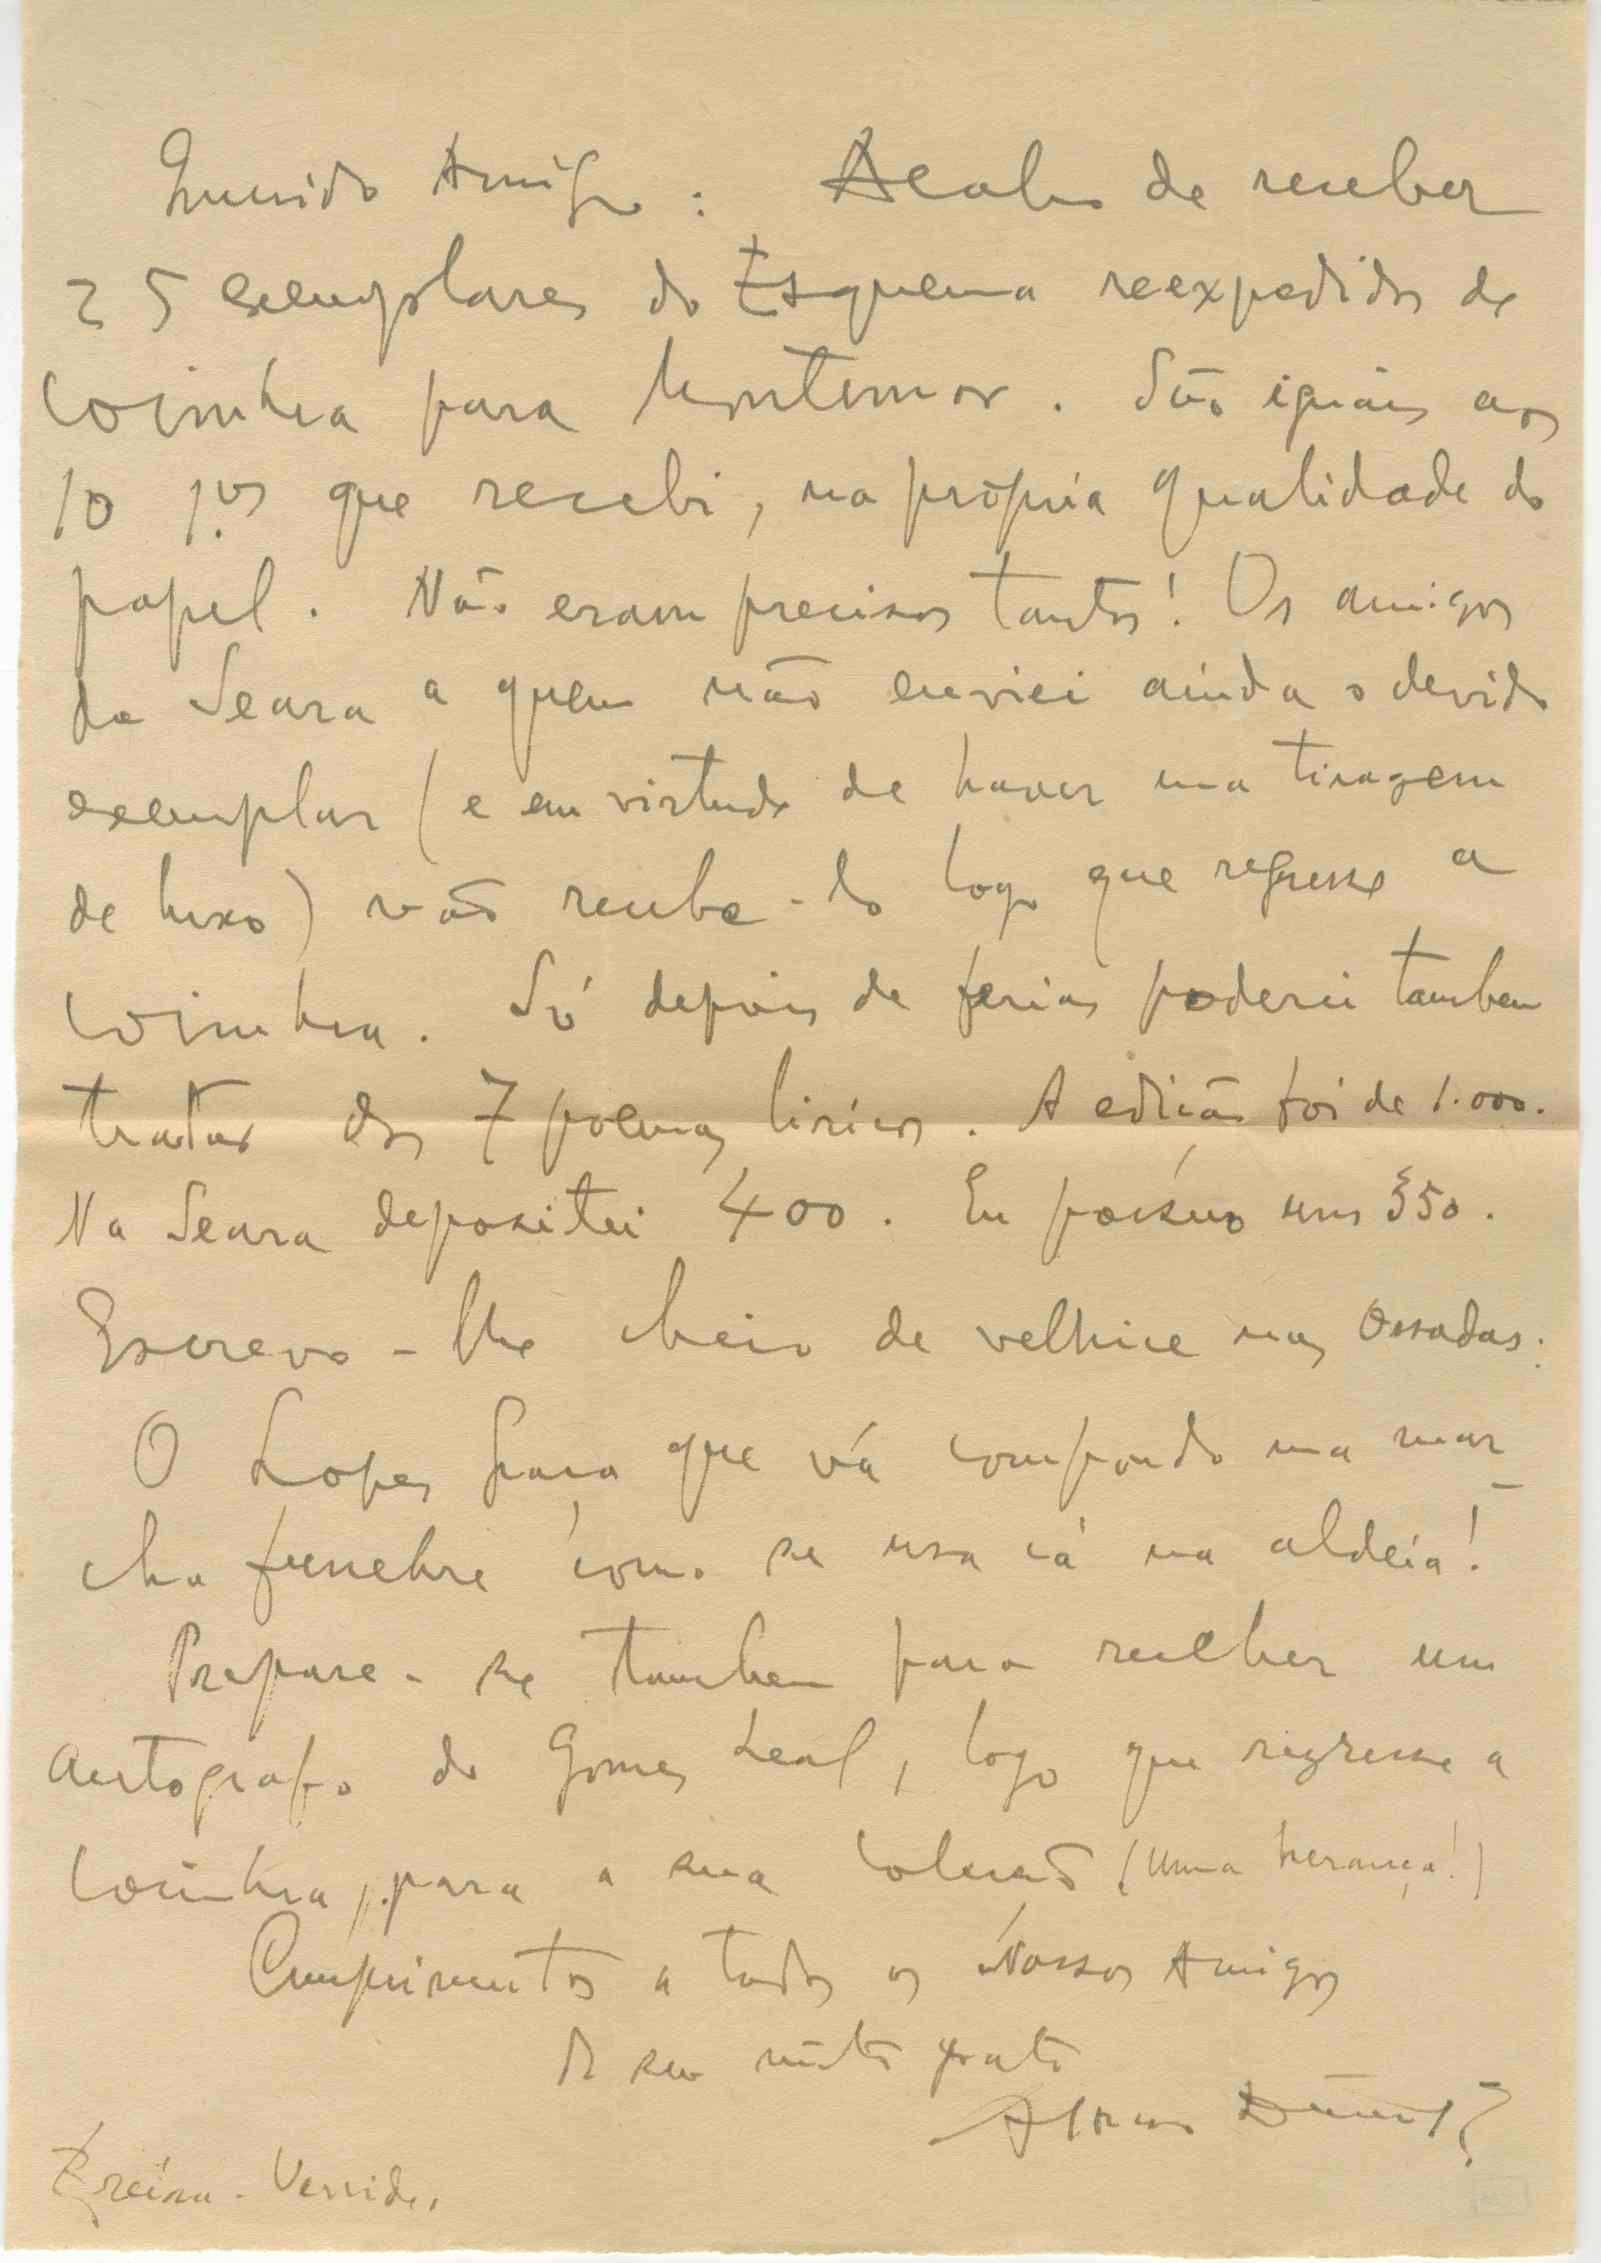 Querido Amigo: Acabo de receber
25 exemplares do Esquema reexpedidos de
Coimbra para Montemor. São iguais aos
10 1.os que recebi, na própria qualidade do
papel. Não eram precisos tantos! Os amigos
da Seara a quem não enviei ainda o devido
exemplar (e em virtude de haver uma tiragem
de luxo) vão recebe-lo logo que regresse a
Coimbra. Só depois de ferias poderei tambem
tratar dos 7 poemas liricos. A edição foi de 1.000.
Na Seara depositei 400. Eu possúo uns 350.
Escrevo-lhe cheio de velhice nas Ossadas:
O Lopes Graça que vá compondo uma mar-
cha funebre como se usa cá na aldeia!
Prepare-se tambem para receber um
autógrafo do Gomes Leal, logo que regresse a
Coimbra, para a sua coleção (uma herança!)
Cumprimentos a todos os Nossos Amigos
do seu muito grato
Afonso Duarte
Ereira - Verride.